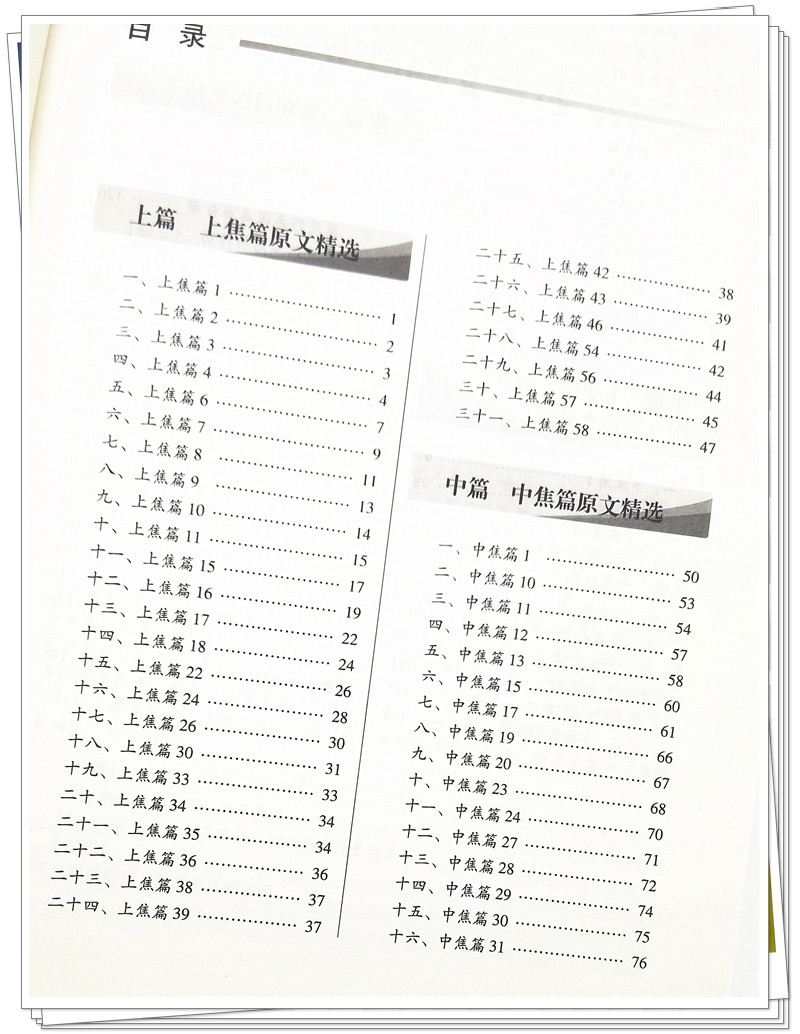 目 录
上篇 上焦篇原文精选
一、上焦篇 1 …… 1
二、上焦篇 2 …… 2
三、上焦篇 3 …… 3
四、上焦篇 4 …… 4
五、上焦篇 6 …… 7
六、上焦篇 7 …… 9
七、上焦篇 8 …… 11
八、上焦篇 9 …… 13
九、上焦篇 10 …… 14
十、上焦篇 11 …… 15
十一、上焦篇 15 …… 17
十二、上焦篇 16 …… 19
十三、上焦篇 17 …… 22
十四、上焦篇 18 …… 24
十五、上焦篇 22 …… 26
十六、上焦篇 24 …… 28
十七、上焦篇 26 …… 30
十八、上焦篇 30 …… 31
十九、上焦篇 33 …… 33
二十、上焦篇 34 …… 34
二十一、上焦篇 35 …… 34
二十二、上焦篇 36 …… 36
二十三、上焦篇 38 …… 37
二十四、上焦篇 39 …… 37
二十五、上焦篇 42 …… 38
二十六、上焦篇 43 …… 39
二十七、上焦篇 46 …… 41
二十八、上焦篇 54 …… 42
二十九、上焦篇 56 …… 44
三十、上焦篇 57 …… 45
三十一、上焦篇 58 …… 47
中篇 中焦篇原文精选
一、中焦篇 1 …… 50
二、中焦篇 10 …… 53
三、中焦篇 11 …… 54
四、中焦篇 12 …… 57
五、中焦篇 13 …… 58
六、中焦篇 15 …… 60
七、中焦篇 17 …… 61
八、中焦篇 19 …… 66
九、中焦篇 20 …… 67
十、中焦篇 23 …… 68
十一、中焦篇 24 …… 70
十二、中焦篇 27 …… 71
十三、中焦篇 28 …… 72
十四、中焦篇 29 …… 74
十五、中焦篇 30 …… 75
十六、中焦篇 31 …… 76